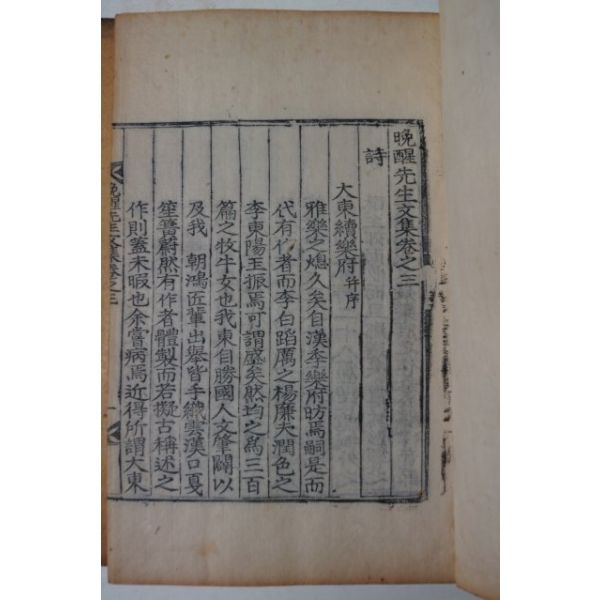 晩醒先生文集卷之三
詩
大東續樂府 幷序
雅樂之熄久矣自漢季樂府昉焉嗣是而
代有作者而李白蹈厲之楊廉夫潤色之
李東陽主振焉可謂盛矣然均之爲三百
篇之牧牛女也我東自勝國人文肇闢以
及我 朝鴻匠輩出擧皆手織雲漢口戛
笙簧蔚然有作者體製而若擬古稱述之
作則蓋未暇也余嘗病焉近得所謂大東
晩醒先生文集卷之三
一